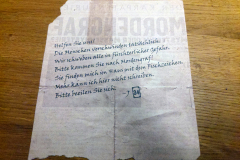 MORDENGRAF
Helfen Sie uns!
Die Menschen verschwinden tatsächlich.
Wir schweben alle in fürchterlicher Gefahr.
Bitte kommen Sie nach Mordengraf!
Sie finden mich im Haus mit dem Fischzeichen.
Mehr kann ich hier nicht schreiben.
Bitte beeilen Sie sich.